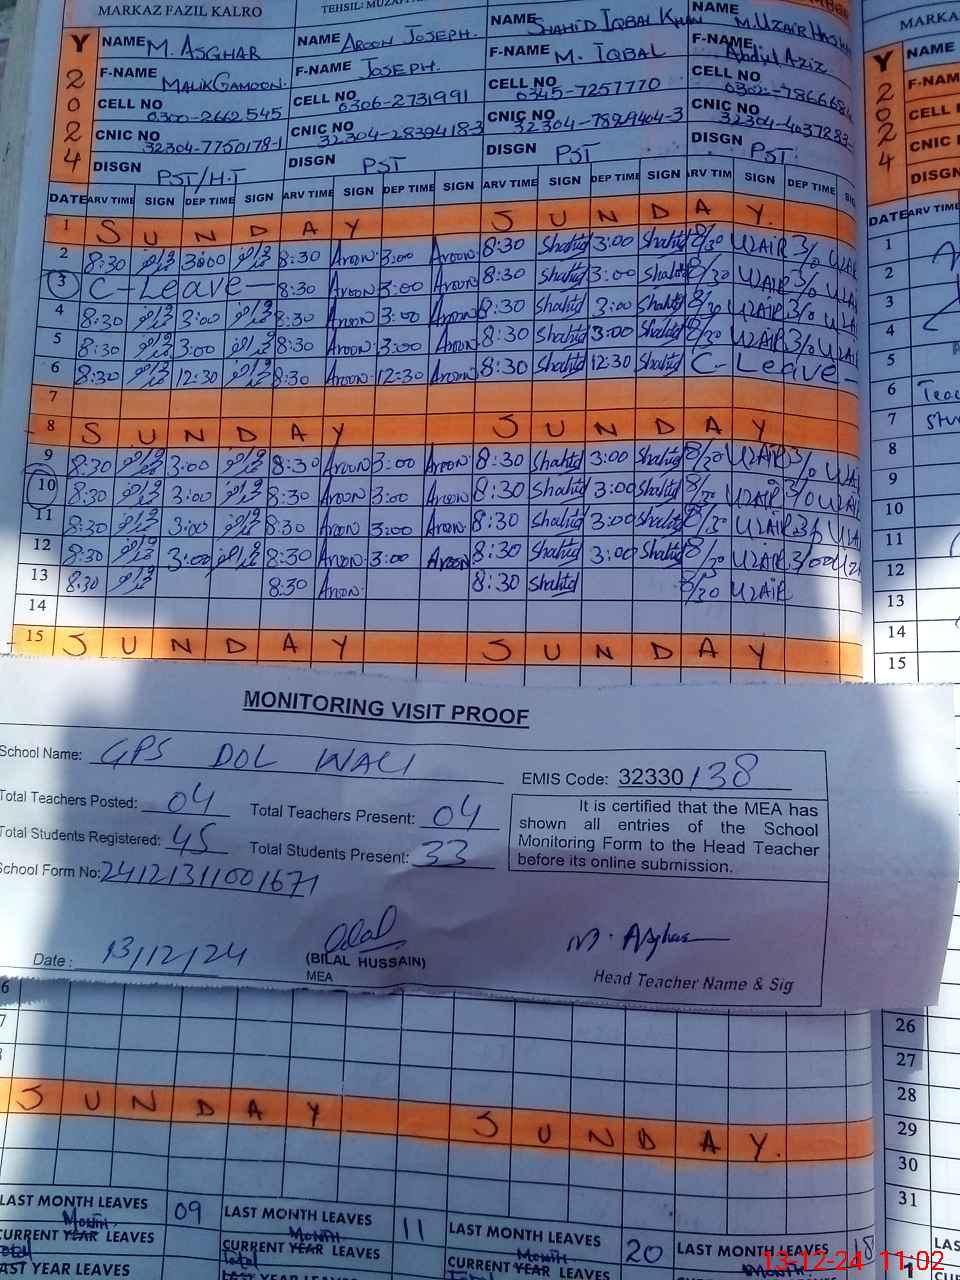 MARKAZ FAZIL KALRO
Y 2 0 2 4
NAME M. ASGHAR
F-NAME MALIK GAMOON.
CELL NO 0300-2662545
CNIC NO 32304-7750178-1
DISGN PST/H.T
NAME AROON JOSEPH.
F-NAME JOSEPH.
CELL NO 0306-2731991
CNIC NO 32304-2839418-3
DISGN PST
NAME SHAHID IQBAL KHAN
F-NAME M. IQBAL
CELL NO 0345-7257770
CNIC NO 32304-7829404-3
DISGN PST
NAME M.UZAIR
F-NAME Abdul Aziz
CELL NO
CNIC NO
DISGN PST.
DATE ARV TIME SIGN DEP TIME SIGN ARV TIME SIGN DEP TIME SIGN ARV TIME SIGN DEP TIME SIGN ARV TIM SIGN DEP TIME
1 SUNDAY SUNDAY.
2 8:30 3:00 8:30 Aroon. 3:00 Aroon. 8:30 Shahid 3:00 Shahid 8/30 UZAIR 3/0 UZAI
3 C-Leave- 8:30 Aroon. 3:00 Aroon. 8:30 Shahid 3:00 Shahid 8/30 UZAIR 3/0 UZA
4 8:30 3:00 8:30 Aroon. 3:00 Aroon. 8:30 Shahid 3:00 Shahid 8/30 UZAIR 3/0 UZA
5 8:30 3:00 8:30 Aroon. 3:00 Aroon. 8:30 Shahid 3:00 Shahid 8/30 UZAIR 3/0 UZAI
6 8:30 12:30 8:30 Aroon. 12:30 Aroon. 8:30 Shahid 12:30 Shahid C-Leave-
7
8 SUNDAY SUNDAY
9 8:30 3:00 8:30 Aroon. 3:00 Aroon. 8:30 Shahid 3:00 Shahid 8/30 UZAIR 3/0 UZAI
10 8:30 3:00 8:30 Aroon. 3:00 Aroon. 8:30 Shahid 3:00 Shahid 8/30 UZAIR 3/0 UZAI
11 8:30 3:00 8:30 Aroon. 3:00 Aroon. 8:30 Shahid 3:00 Shahid 8/30 UZAIR 3/0 UZA
12 8:30 3:00 8:30 Aroon. 3:00 Aroon 8:30 Shahid 3:00 Shahid 8/30 UZAIR 3/00 UZA
13 8:30 8:30 Aroon. 8:30 Shahid 8/30 UZAIR
14
15 SUNDAY SUNDAY
MONITORING VISIT PROOF
School Name: GPS DOL WALI
EMIS Code: 32330138
Total Teachers Posted: 04 Total Teachers Present: 04
Total Students Registered: 45 Total Students Present: 33
School Form No: 24121311001671
It is certified that the MEA has
shown all entries of the School
Monitoring Form to the Head Teacher
before its online submission.
Date: 13/12/24
(BILAL HUSSAIN)
MEA
M. Asghar
Head Teacher Name & Sig
SUNDAY SUNDAY.
LAST MONTH LEAVES 09 LAST MONTH LEAVES 11 LAST MONTH LEAVES 20 LAST MONTH LEAVES 18
Month Month Month Month
CURRENT YEAR LEAVES CURRENT YEAR LEAVES CURRENT YEAR LEAVES
Total Total Total
LAST YEAR LEAVES LAST YEAR LEAVES
MARKA
Y 2 0 2 4
NAME
F-NAM
CELL
CNIC
DISGN
DATE ARV TIME
1
2
3
4
5
6 Teac
7 Stu
8
9
10
11
12
13
14
15
26
27
28
29
30
31
13-12-24 11:02